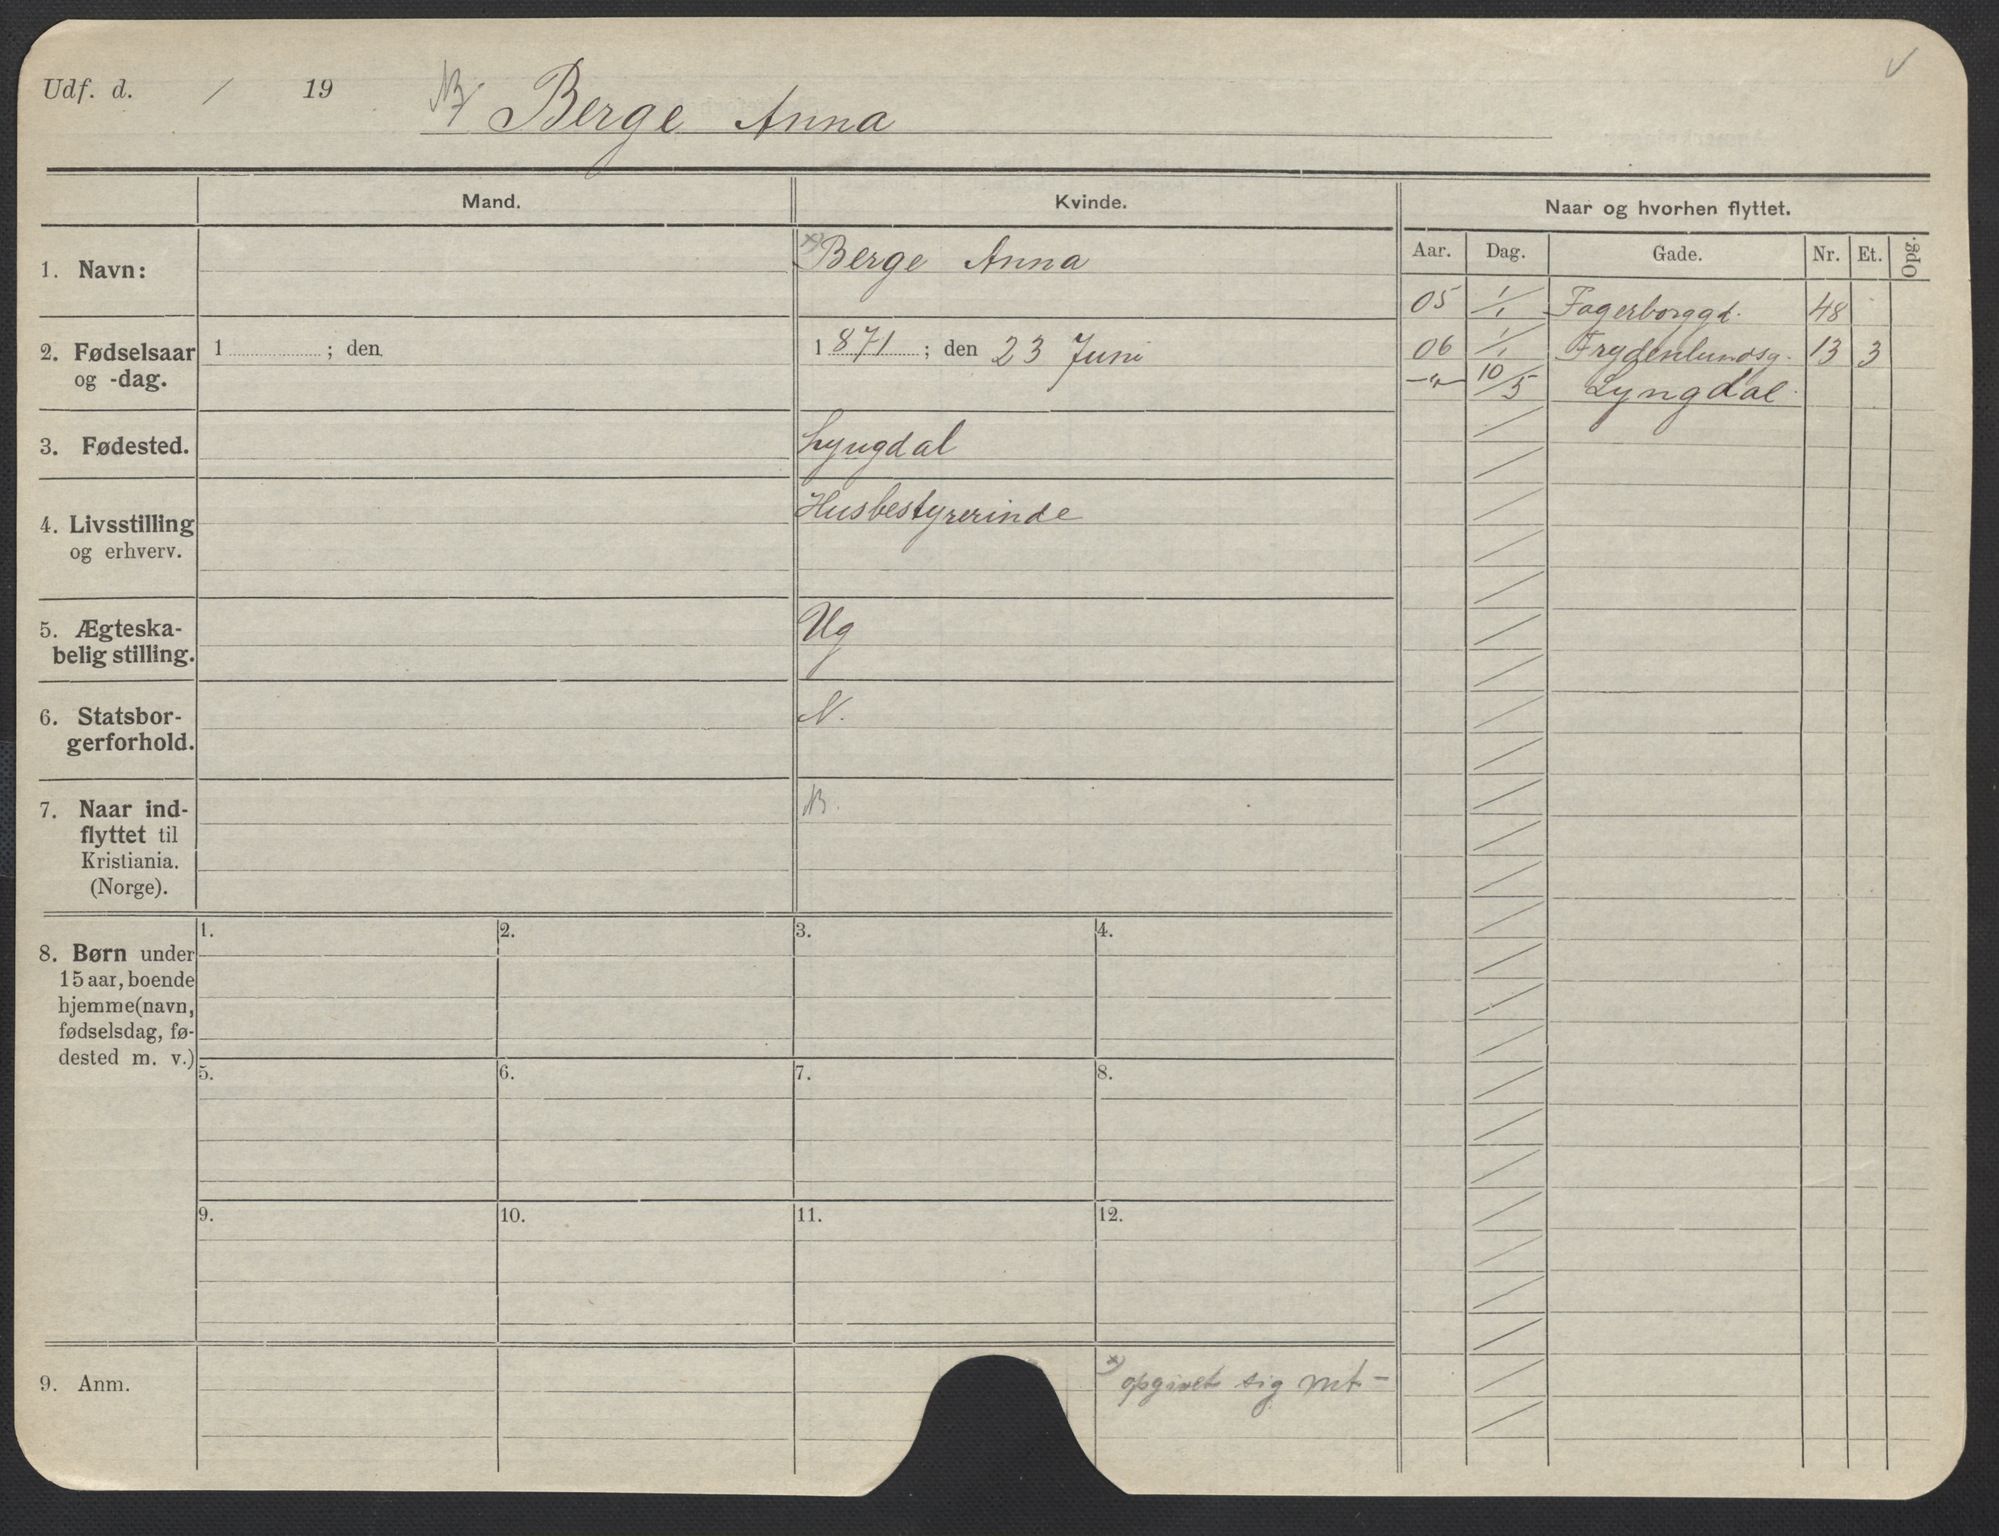 Udf. d. / 19
Berge Anna
Mand.
Kvinde.
Naar og hvorhen flyttet.
Aar. Dag. Gade. Nr. Et. Opg.
1. Navn:
x) Berge Anna
05 1/1 Fagerborggd. 48
2. Fødselsaar
og -dag.
1 ; den
1 871 ; den 23 Juni
06 1/1 Frydenlundsg. 13 3
—"— 10/5 Lyngdal
3. Fødested.
Lyngdal
4. Livsstilling
og erhverv.
Husbestyrerinde
5. Ægteska-
belig stilling.
Ug
6. Statsbor-
gerforhold.
N.
7. Naar ind-
flyttet til
Kristiania.
(Norge).
8. Børn under
15 aar, boende
hjemme (navn,
fødselsdag, fø-
dested m. v.)
1. 2. 3. 4.
5. 6. 7. 8.
9. 10. 11. 12.
9. Anm.
x) opgivet sig